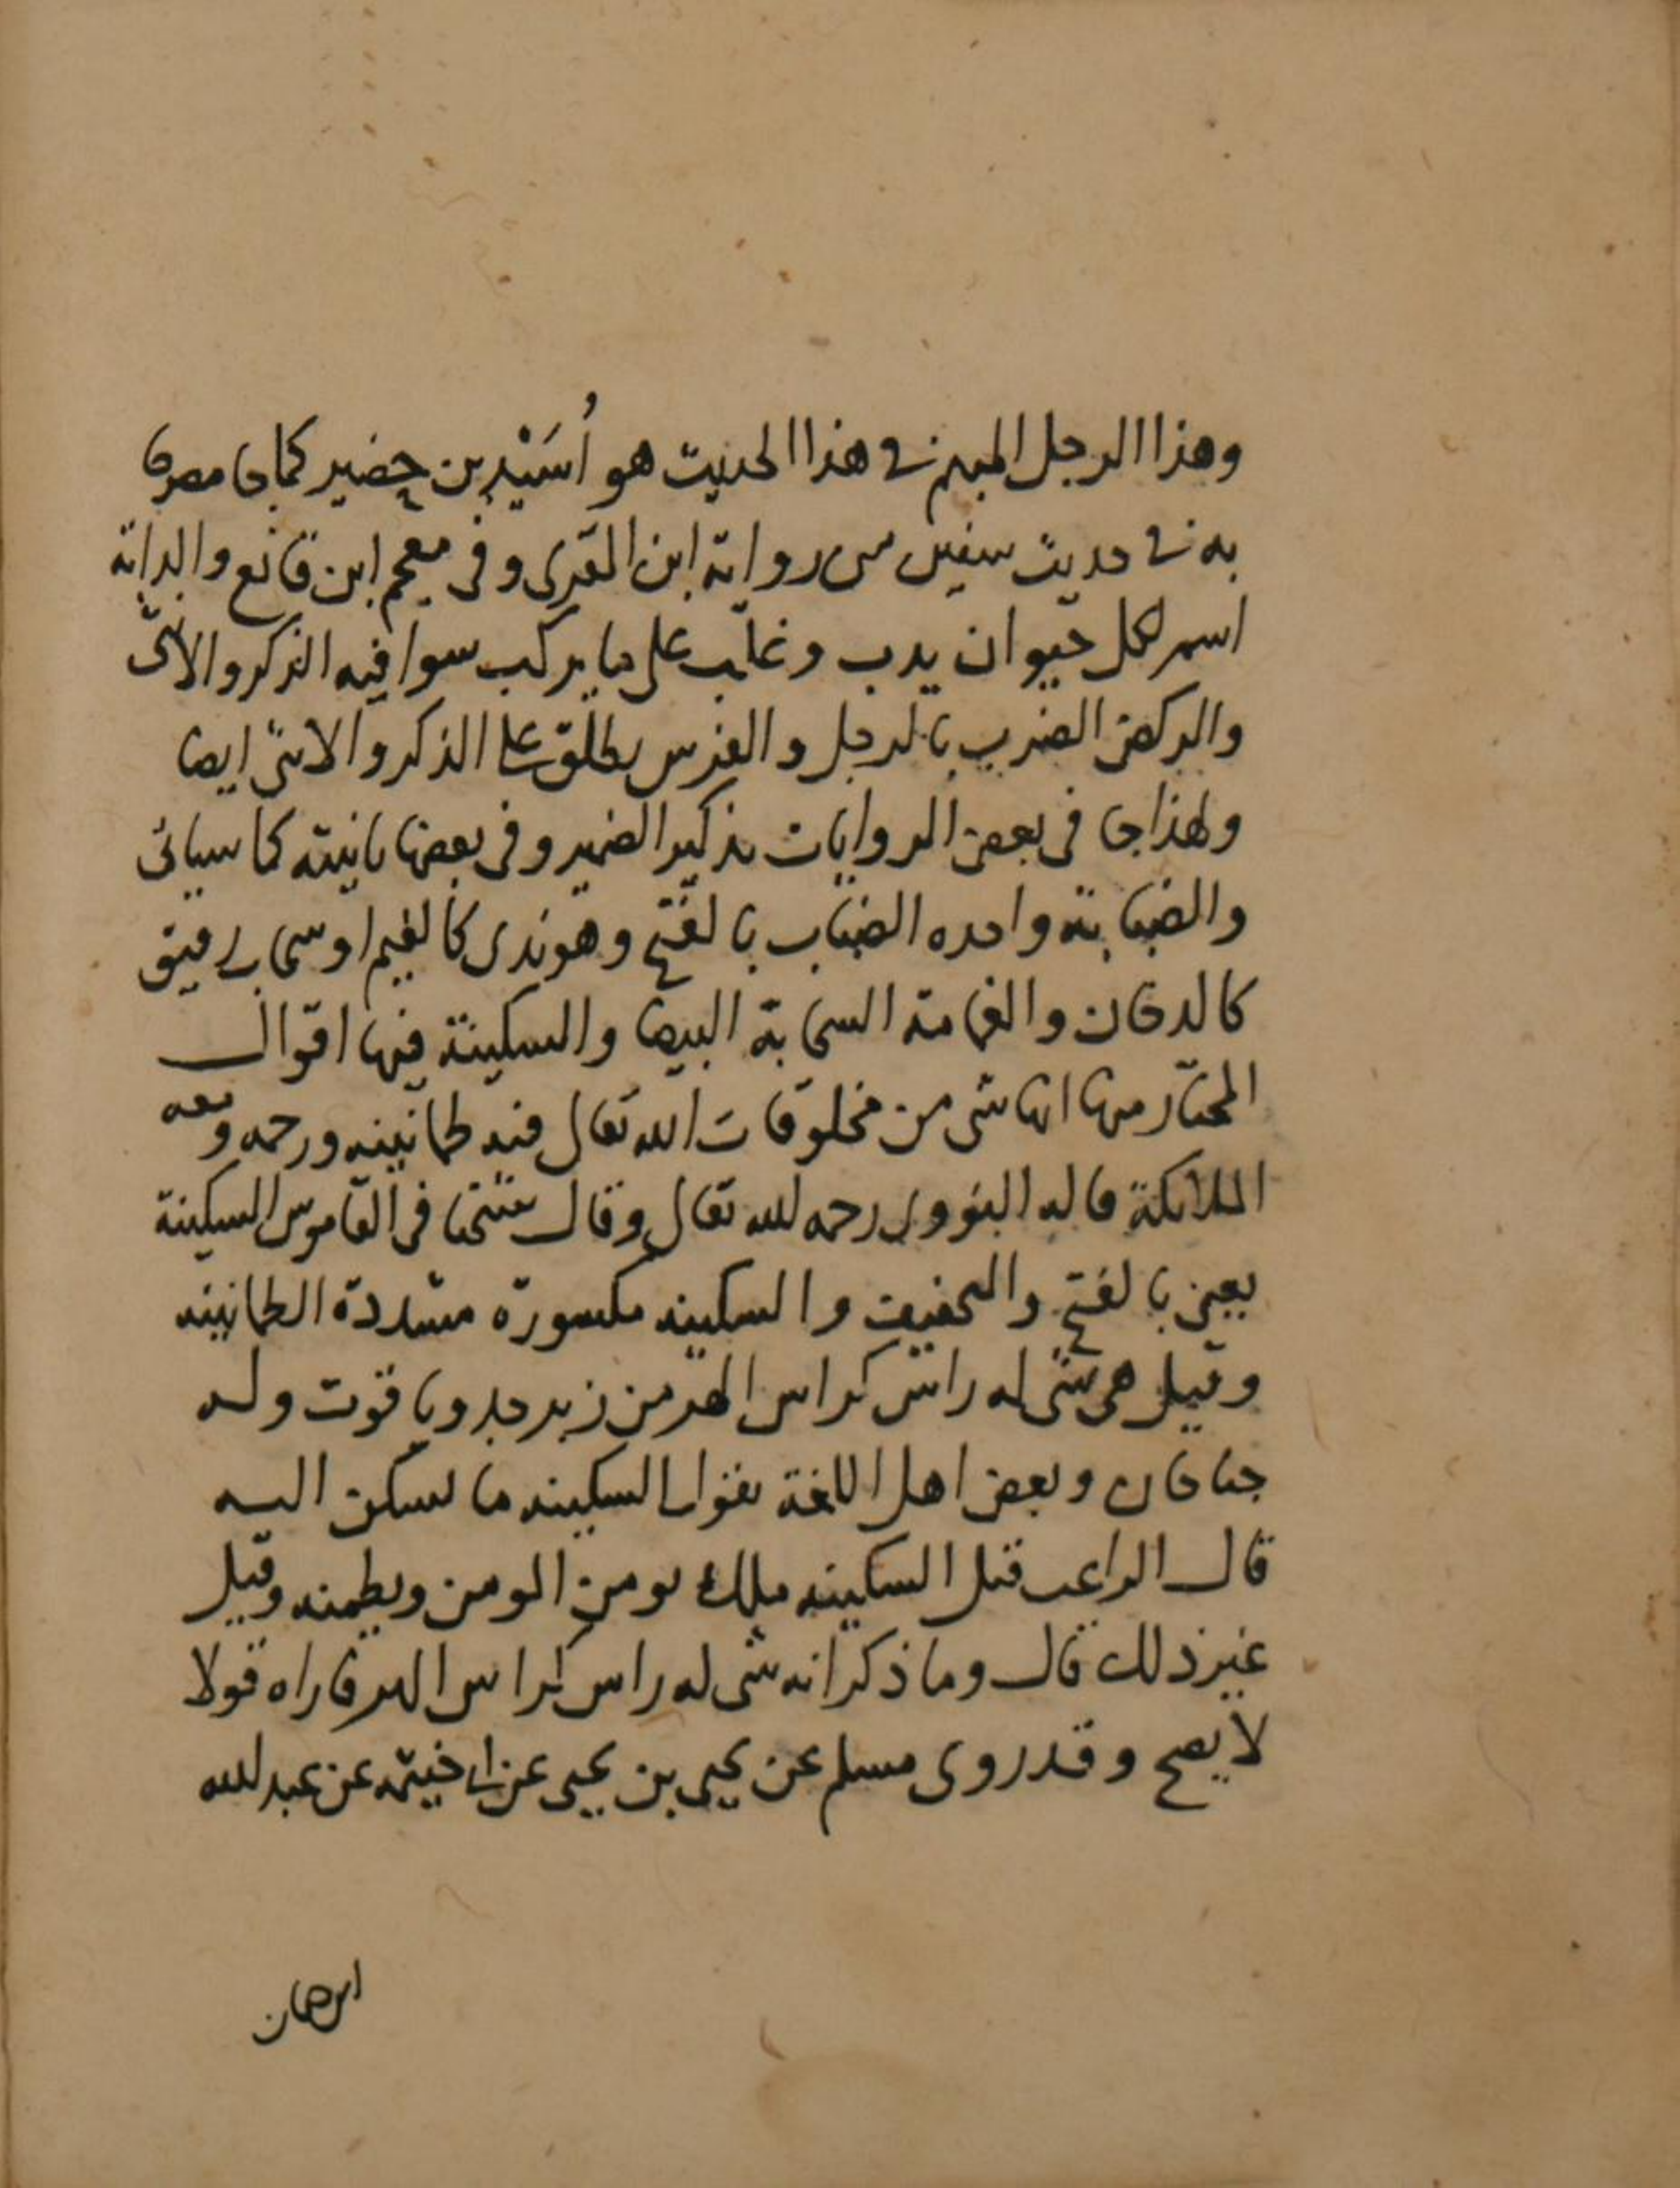 وهذا الرجل المبهم في هذا الحديث هو أُسَيْد بن حضير كما جا مصرحا
به في حديث سفين من رواية ابن المقري وفي معجم ابن قانع والدابة
اسم لكل حيوان يدب وغلب على ما يركب سوا فيه الذكر والانثى
والركض الضرب بالرجل والفرس يطلق على الذكر والانثى ايضا
ولهذا جا في بعض الروايات بتذكير الضمير وفي بعضها بتانيثه كما سياتي
والضبابة واحده الضباب بالفتح وهو ندى كالغيم او سحاب رقيق
كالدخان والغمامة السحابة البيضا والسكينة فيها اقوال
المختار منها انها شي من مخلوقات الله تعالى فيه طمانينه ورحمه ومعه
الملائكة قاله النووي رحمه الله تعالى وقال شيخنا في القاموس السكينة
يعني بالفتح والتخفيف والسكينه مكسورة مشددة الطمانينه
وقيل هي شي له راس كراس الهر من زبرجد وياقوت وله
جناحان وبعض اهل اللغة يقول السكينه ما يسكن اليه
قال الراغب قيل السكينه ملك يومن المومن ويطمنه وقيل
غير ذلك قال وما ذكر انه شي له راس كراس الهر فاراه قولا
لا يصح وقد روى مسلم عن يحيى بن يحيى عن ابي خيثمه عن عبد الله